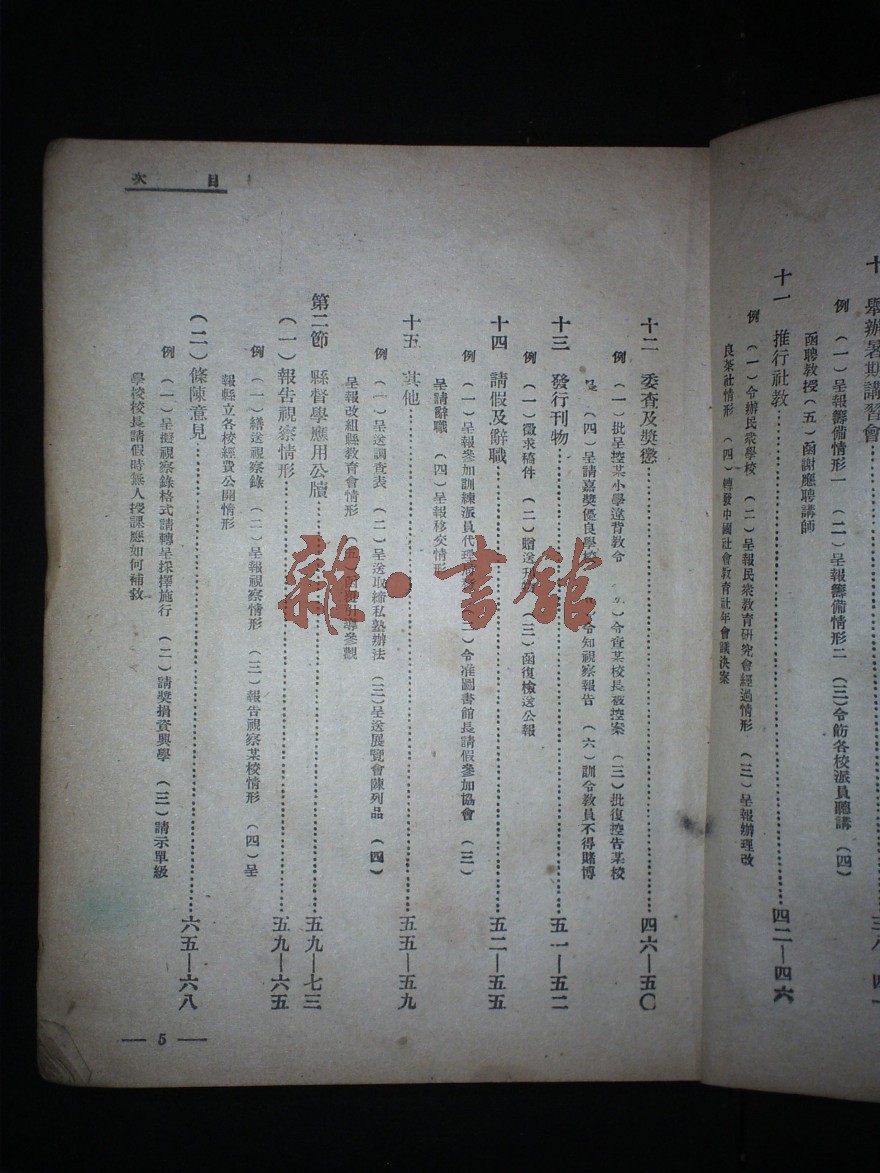 十 舉辦暑期講習會
例 (一)呈報籌備情形一 (二)呈報籌備情形二 (三)令飭各校派員聽講 (四)
函聘教授 (五)函謝應聘講師
十一 推行社教……四二—四六
例 (一)令辦民衆學校 (二)呈報民衆教育研究會經過情形 (三)呈報辦理改
良茶社情形 (四)轉發中國社會教育社年會議決案
目次
十二 委查及獎懲……四六—五〇
例 (一)批呈控某小學違背教令 )令查某校長被控案 (三)批復控告某校
(四)呈請嘉獎優良學校 令知視察報告 (六)訓令教員不得賭博
十三 發行刊物……五一—五二
例 (一)徵求稿件 (二)贈送刊 (三)函復檢送公報
十四 請假及辭職……五二—五五
例 (一)呈報參加訓練派員代理 )令准圖書館長請假參加協會 (三)
呈請辭職 (四)呈報移交情形
十五 其他……五五—五九
例 (一)呈送調查表 (二)呈送取締私塾辦法 (三)呈送展覽會陳列品 (四)
呈報改組縣教育會情形 導參觀
第二節 縣督學應用公牘……五九—七三
(一)報告視察情形……五九—六五
例 (一)繕送視察錄 (二)呈報視察情形 (三)報告視察某校情形 (四)呈
報縣立各校經費公開情形
(二)條陳意見……六五—六八
例 (一)呈擬視察錄格式請轉呈採擇施行 (二)請獎捐資興學 (三)請示單級
學校校長請假時無人授課應如何補救
— 5 —
雜·書館